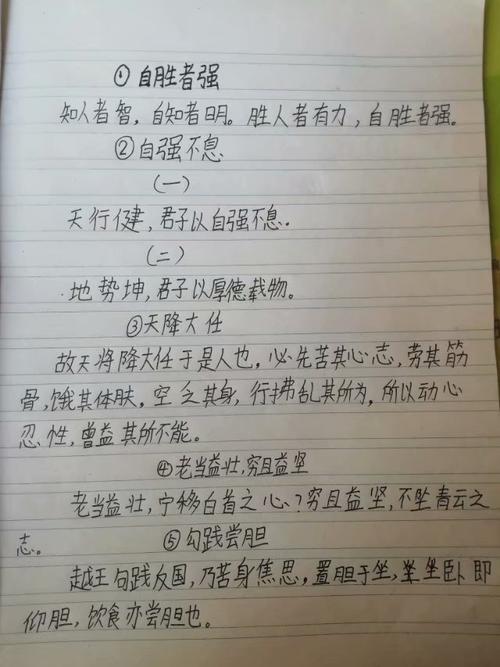 ①自胜者强
知人者智，自知者明。胜人者有力，自胜者强。
②自强不息
(一)
天行健，君子以自强不息.
(二)
地势坤，君子以厚德载物。
③天降大任
故天将降大任于是人也，必先苦其心志，劳其筋
骨，饿其体肤，空乏其身，行拂乱其所为，所以动心
忍性，曾益其所不能。
④老当益壮，穷且益坚
老当益壮，宁移白首之心？穷且益坚，不坠青云之
志。
⑤勾践尝胆
越王句践反国，乃苦身焦思，置胆于坐，坐卧即
仰胆，饮食亦尝胆也。